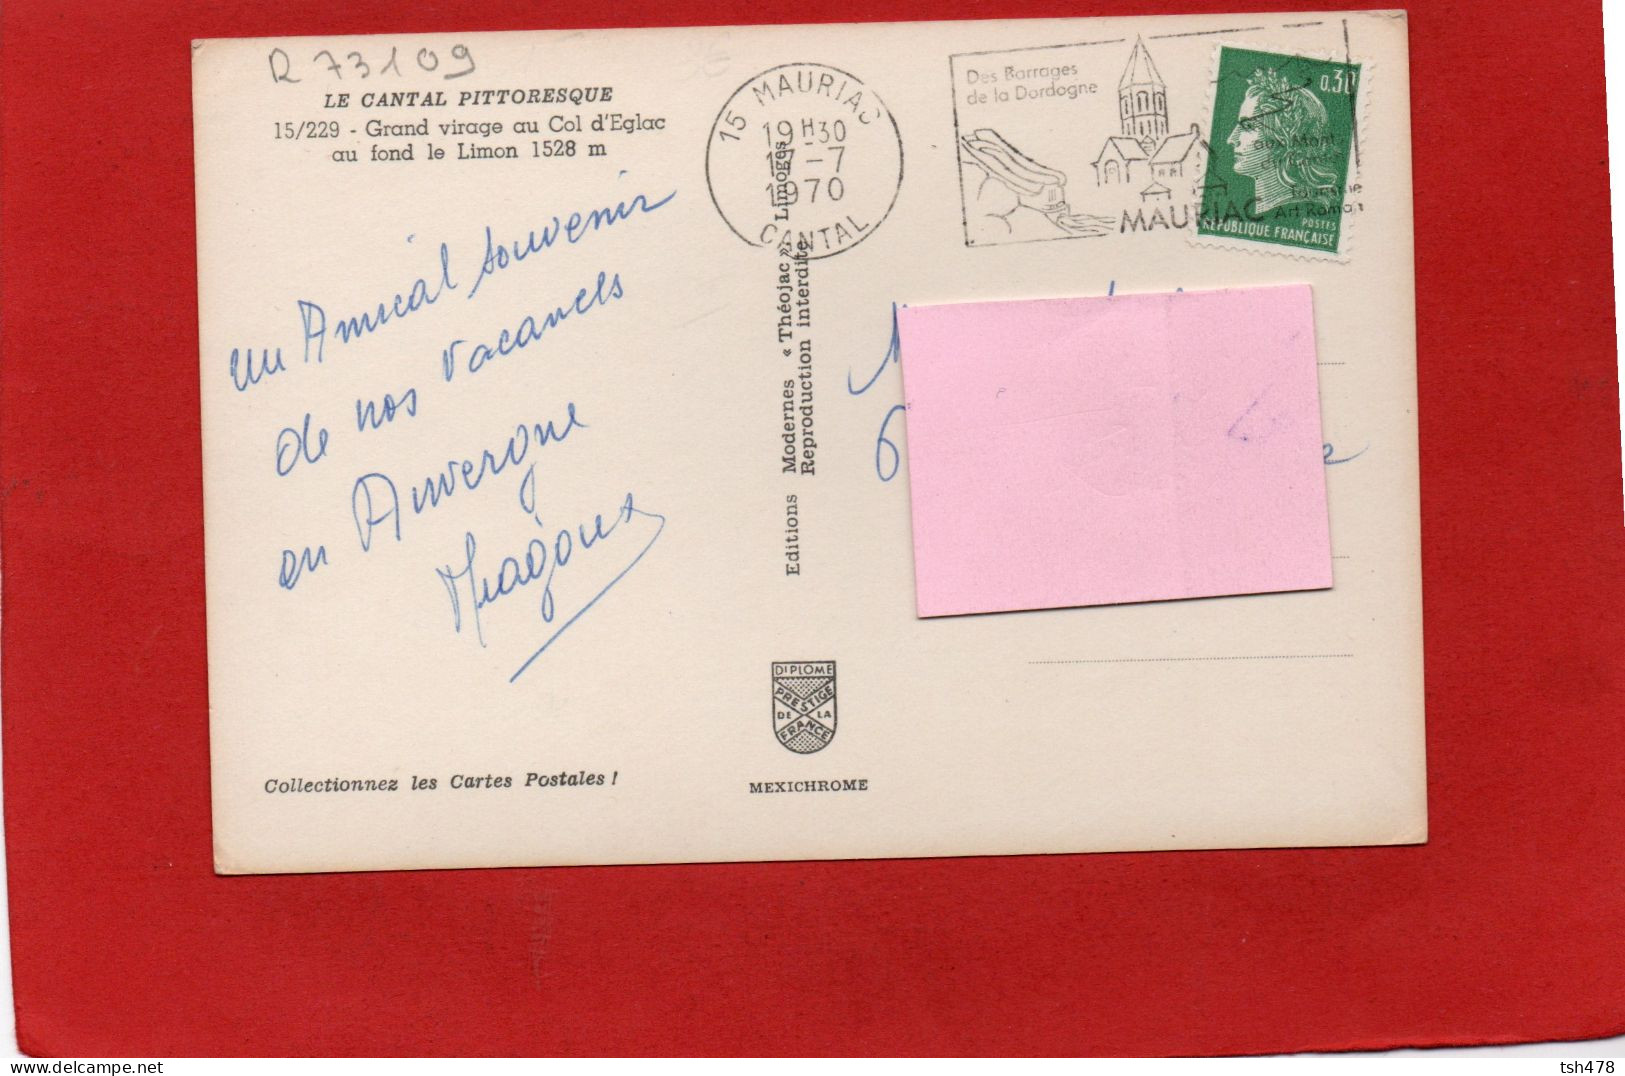 R 73109
LE CANTAL PITTORESQUE
15/229 - Grand virage au Col d'Eglac
au fond le Limon 1528 m
un Amical souvenir
de nos vacances
en Auvergne
Magoux
Collectionnez les Cartes Postales !
Editions Modernes « Théojac » Limoges
Reproduction interdite
DIPLOME
PRESTIGE
DE LA
FRANCE
MEXICHROME
15 MAURIAC
19 H 30
-7
1970
CANTAL
Des Barrages
de la Dordogne
aux Mont
MAURIAC
Art Roman
0,30
POSTES
REPUBLIQUE FRANÇAISE
tsh478